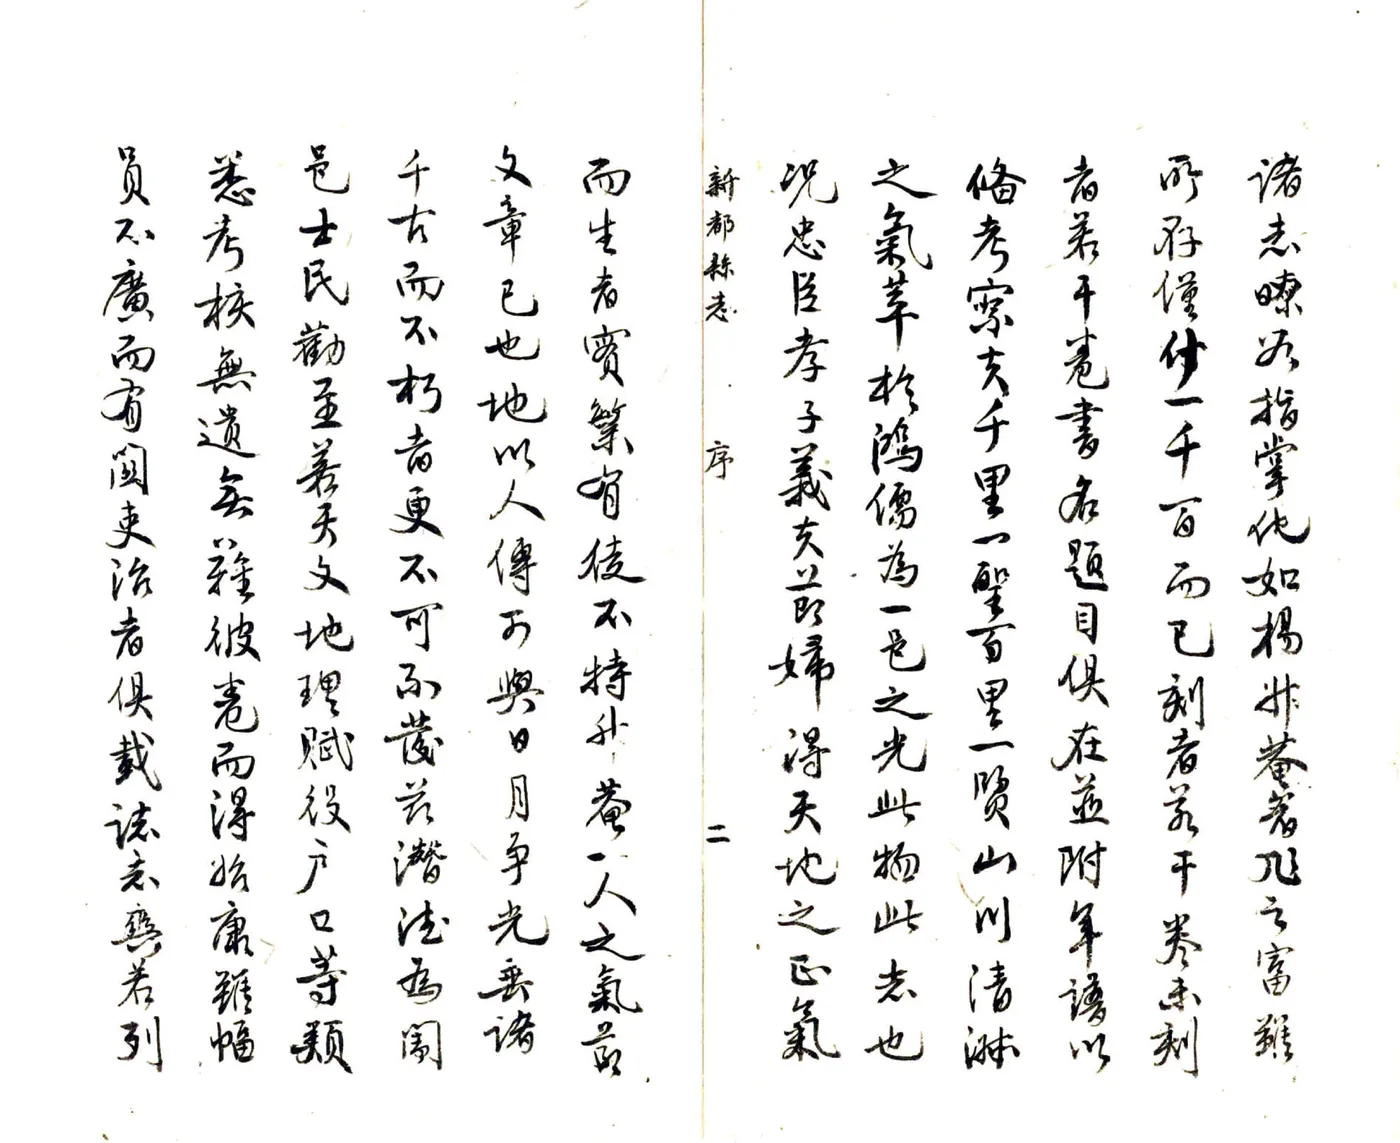 諸志瞭若指掌他如楊升菴著作之富雖
所存僅什一千百而已刻者若干卷未刻
者若干卷書名題目俱在並附年譜以
備考察夫千里一聖百里一賢山川清淑
之氣萃於鴻儒為一邑之光此物此志也
况忠臣孝子義夫節婦得天地之正氣
新都縣志 序 二
而生者實繁有徒不特升菴一人之氣節
文章已也地以人傳可與日月爭光垂諸
千古而不朽者更不可不發茲潛德為闔
邑士民勸至若天文地理賦役户口等類
悉考核無遺無難彼卷而得始康雖幅
員不廣而有關吏治者俱載誌志與若列